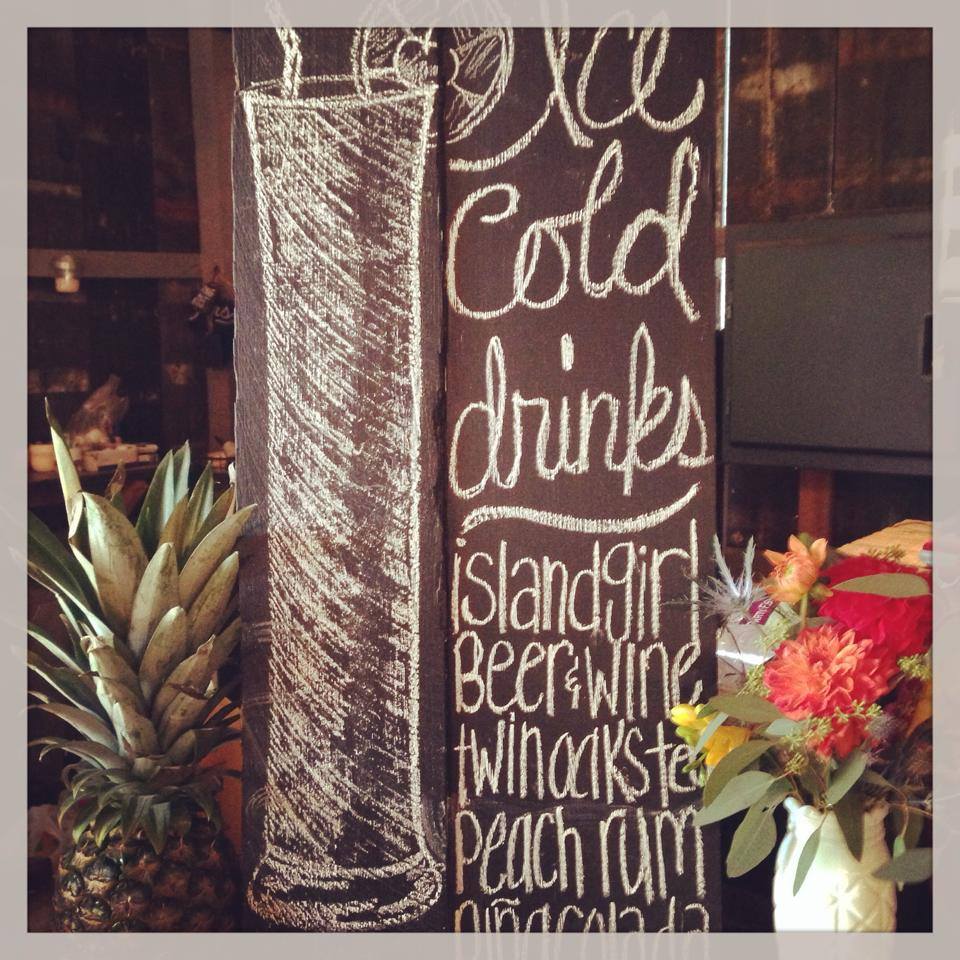 Ice
Cold
drinks
island girl
Beer & wine
twin oaks tea
peach rum
piña colada